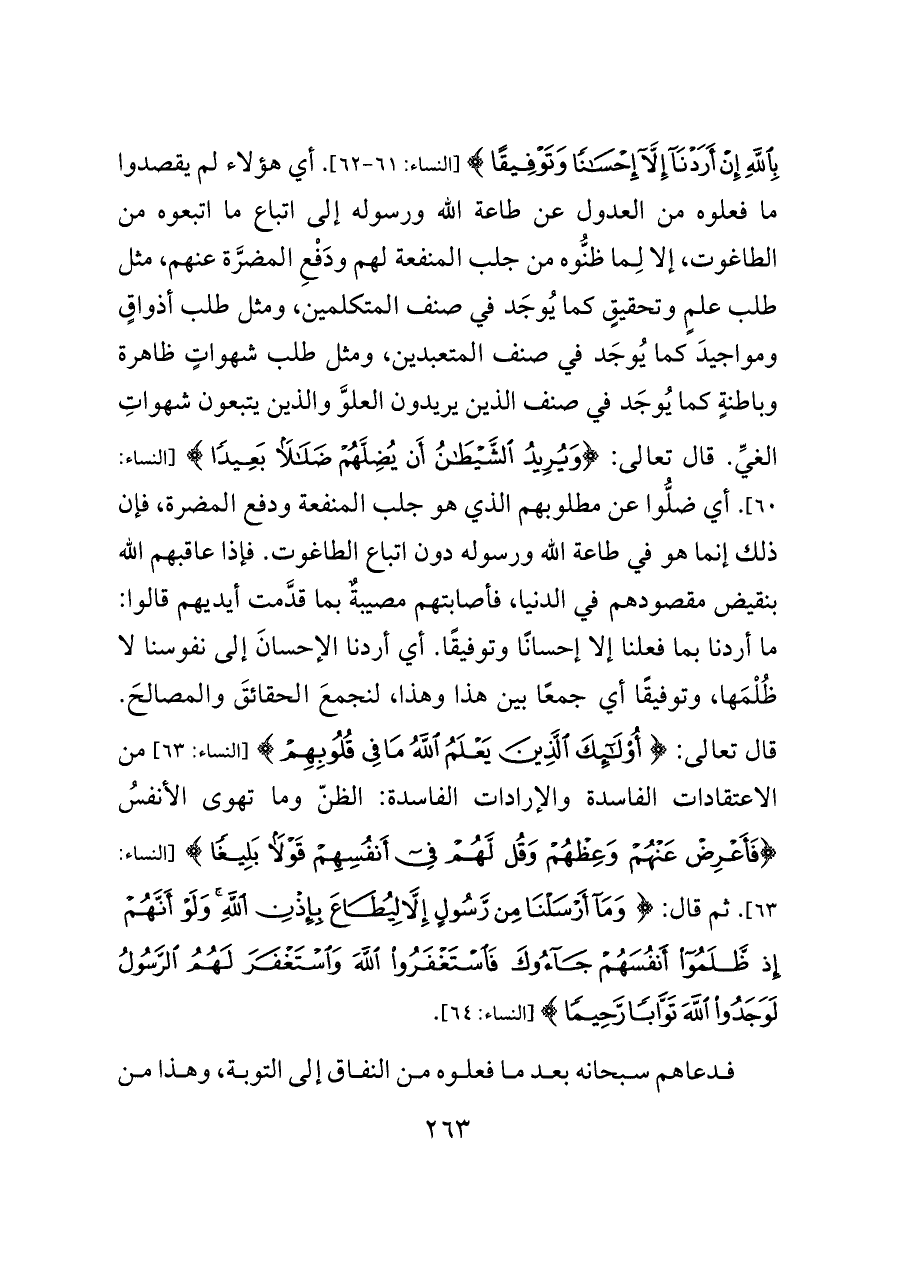 بِٱللَّهِ إِنۡ أَرَدۡنَآ إِلَّآ إِحۡسَٰنٗا وَتَوۡفِيقًا ﴾ [النساء: ٦١-٦٢]. أي هؤلاء لم يقصدوا
ما فعلوه من العدول عن طاعة الله ورسوله إلى اتباع ما اتبعوه من
الطاغوت، إلا لِـما ظنُّوه من جلب المنفعة لهم ودَفْعِ المضرَّة عنهم، مثل
طلب علمٍ وتحقيقٍ كما يُوجَد في صنف المتكلمين، ومثل طلب أذواقٍ
ومواجيدَ كما يُوجَد في صنف المتعبدين، ومثل طلب شهواتٍ ظاهرة
وباطنةٍ كما يُوجَد في صنف الذين يريدون العلوَّ والذين يتبعون شهواتِ
الغيِّ. قال تعالى: ﴿وَيُرِيدُ ٱلشَّيۡطَٰنُ أَن يُضِلَّهُمۡ ضَلَٰلَۢا بَعِيدٗا ﴾ [النساء:
٦٠]. أي ضلُّوا عن مطلوبهم الذي هو جلب المنفعة ودفع المضرة، فإن
ذلك إنما هو في طاعة الله ورسوله دون اتباع الطاغوت. فإذا عاقبهم الله
بنقيض مقصودهم في الدنيا، فأصابتهم مصيبةٌ بما قدَّمت أيديهم قالوا:
ما أردنا بما فعلنا إلا إحسانًا وتوفيقًا. أي أردنا الإحسانَ إلى نفوسنا لا
ظُلْمَها، وتوفيقًا أي جمعًا بين هذا وهذا، لنجمعَ الحقائقَ والمصالحَ.
قال تعالى: ﴿ أُوْلَٰٓئِكَ ٱلَّذِينَ يَعۡلَمُ ٱللَّهُ مَا فِي قُلُوبِهِمۡ ﴾ [النساء: ٦٣] من
الاعتقادات الفاسدة والإرادات الفاسدة: الظنّ وما تهوى الأنفسُ
﴿فَأَعۡرِضۡ عَنۡهُمۡ وَعِظۡهُمۡ وَقُل لَّهُمۡ فِيٓ أَنفُسِهِمۡ قَوۡلَۢا بَلِيغٗا ﴾ [النساء:
٦٣]. ثم قال: ﴿ وَمَآ أَرۡسَلۡنَا مِن رَّسُولٍ إِلَّا لِيُطَاعَ بِإِذۡنِ ٱللَّهِۚ وَلَوۡ أَنَّهُمۡ
إِذ ظَّلَمُوٓاْ أَنفُسَهُمۡ جَآءُوكَ فَٱسۡتَغۡفَرُواْ ٱللَّهَ وَٱسۡتَغۡفَرَ لَهُمُ ٱلرَّسُولُ
لَوَجَدُواْ ٱللَّهَ تَوَّابٗا رَّحِيمٗا ﴾ [النساء: ٦٤].
فدعاهم سبحانه بعد ما فعلوه من النفاق إلى التوبة، وهذا من
٢٦٣